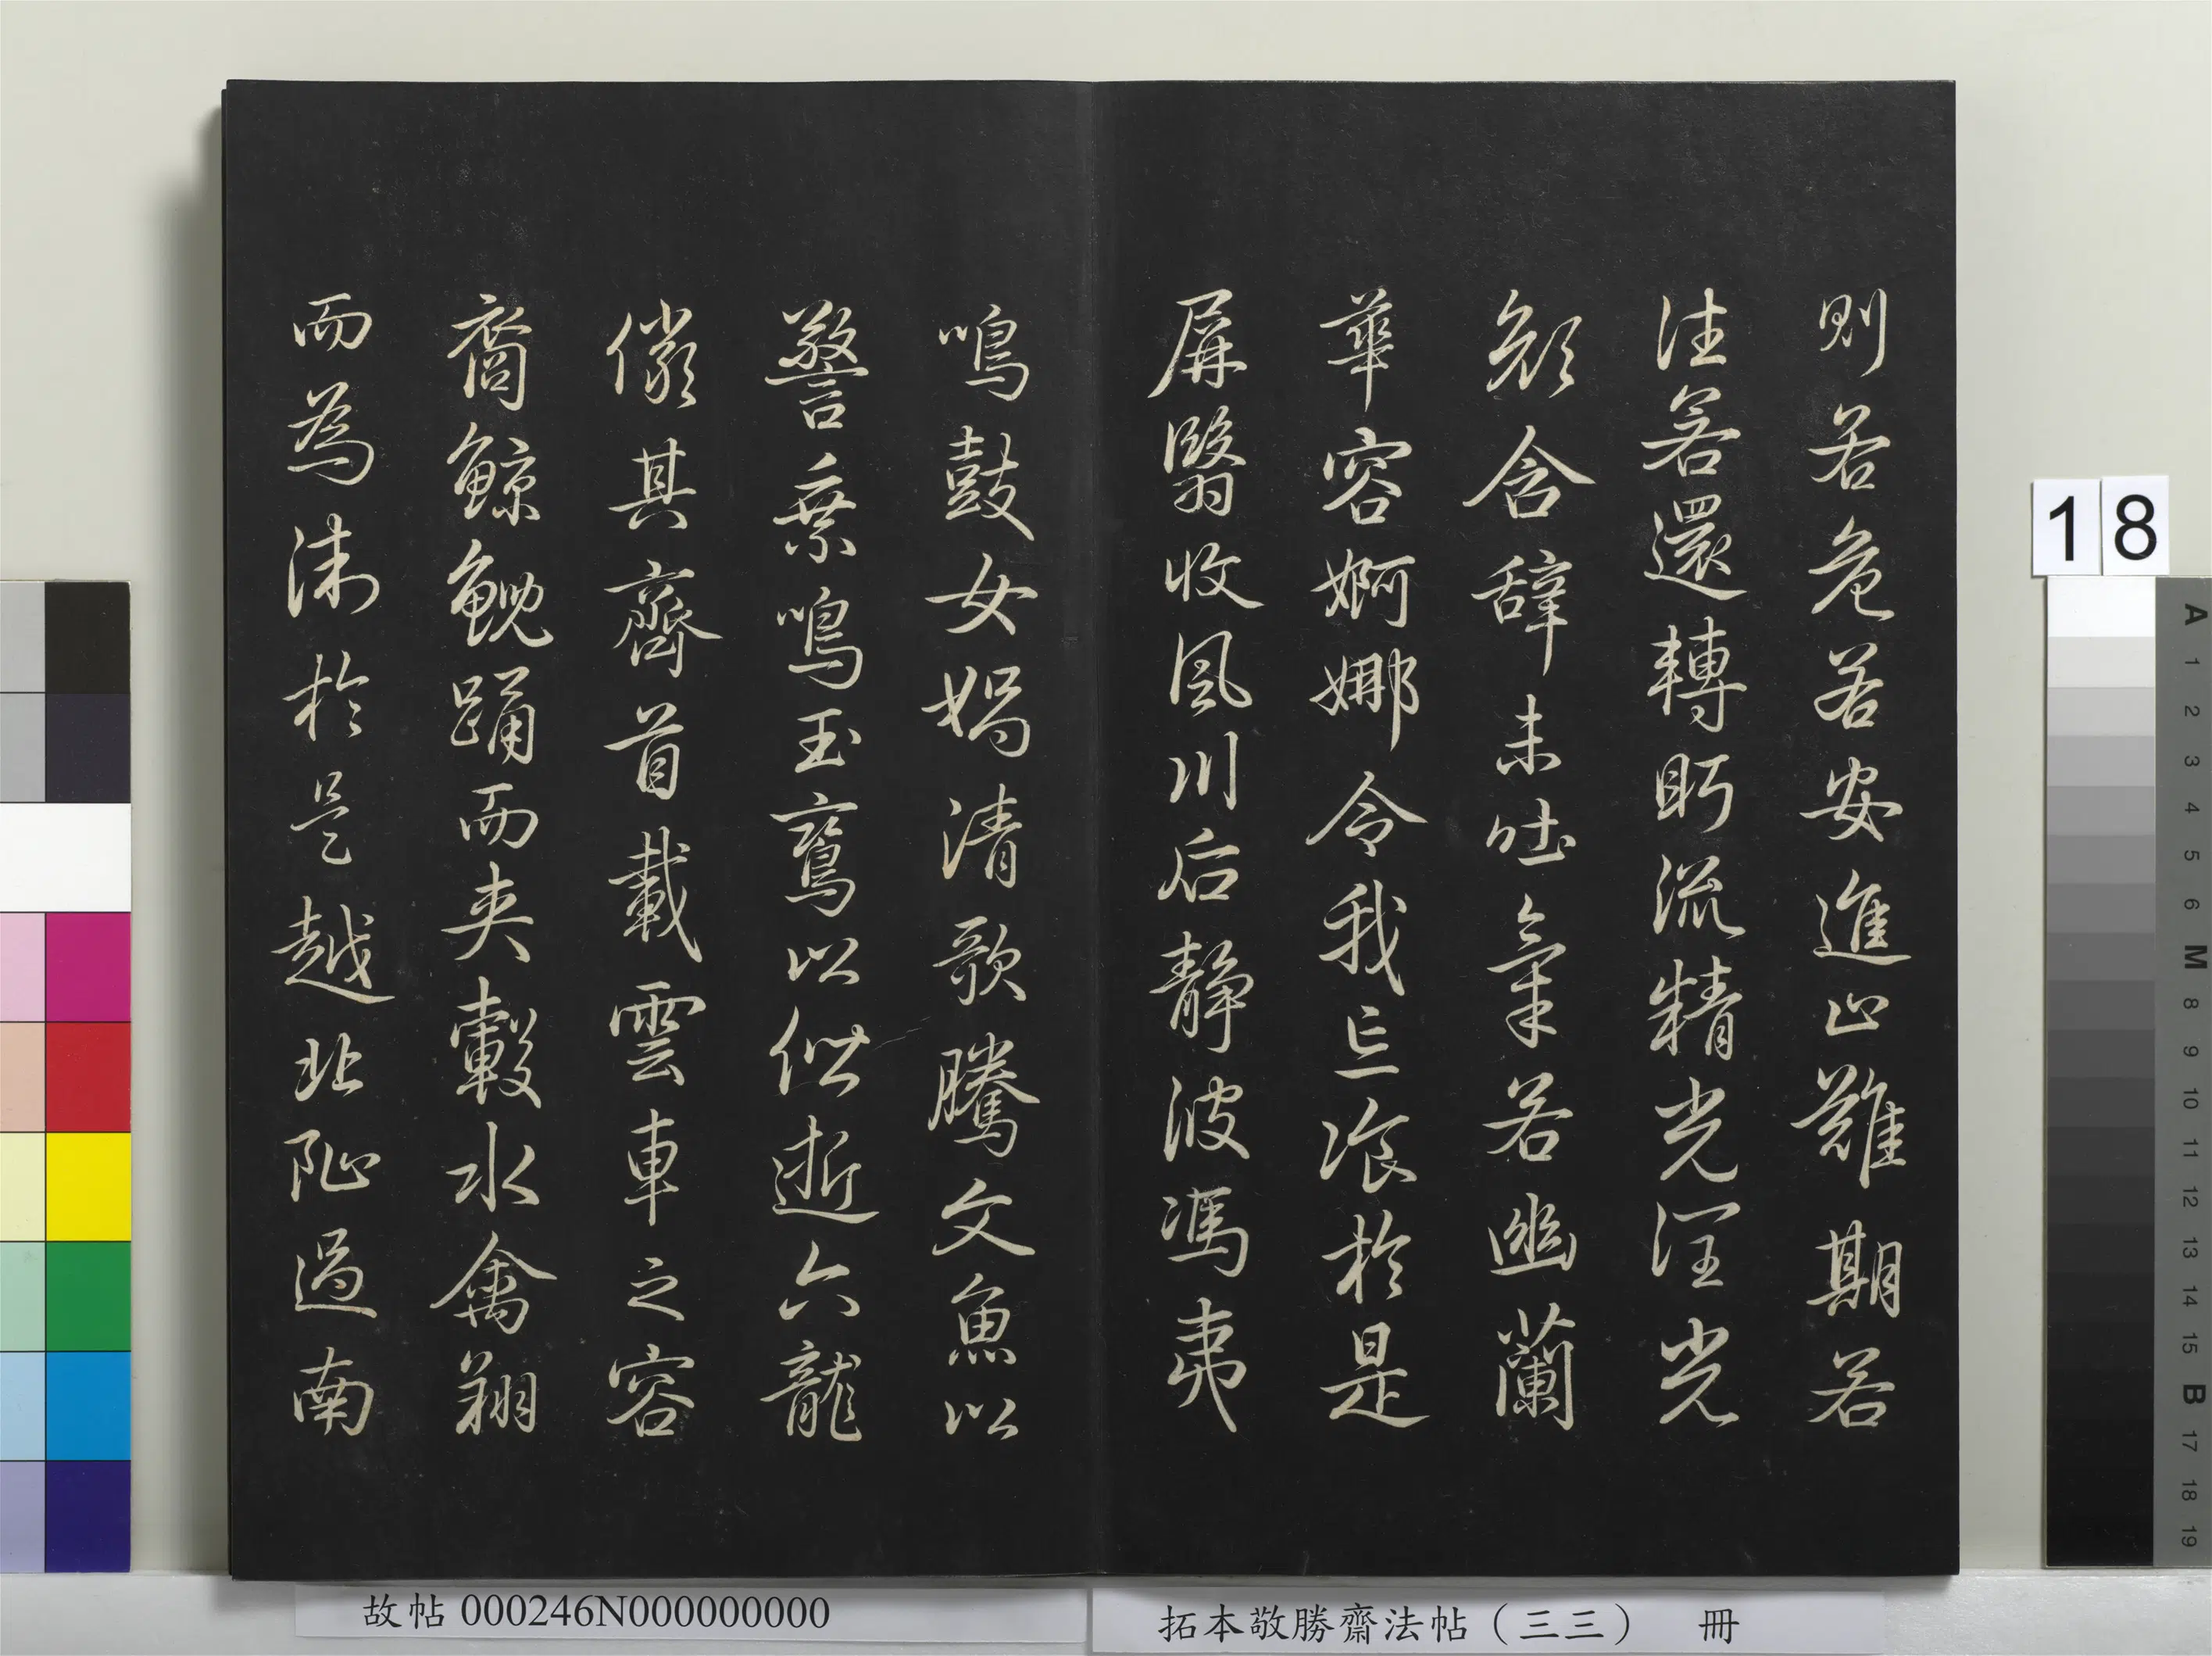 則若危若安進止難期若
往若還轉眄流精光潤光
顏含辭未吐氣若幽蘭
華容婀娜令我忘飡於是
屏翳收風川后静波馮夷
鳴鼓女媧清歌騰文魚以
警乘鳴玉鸞以偕逝六龍
儼其齊首載雲車之容
裔鯨鯢踊而夾轂水禽翔
而為沬於是越北阯過南
18
A 1 2 3 4 5 6 M 8 9 10 11 12 13 14 15 B 17 18 19
故帖000246N000000000
拓本敬勝齋法帖（三三） 冊